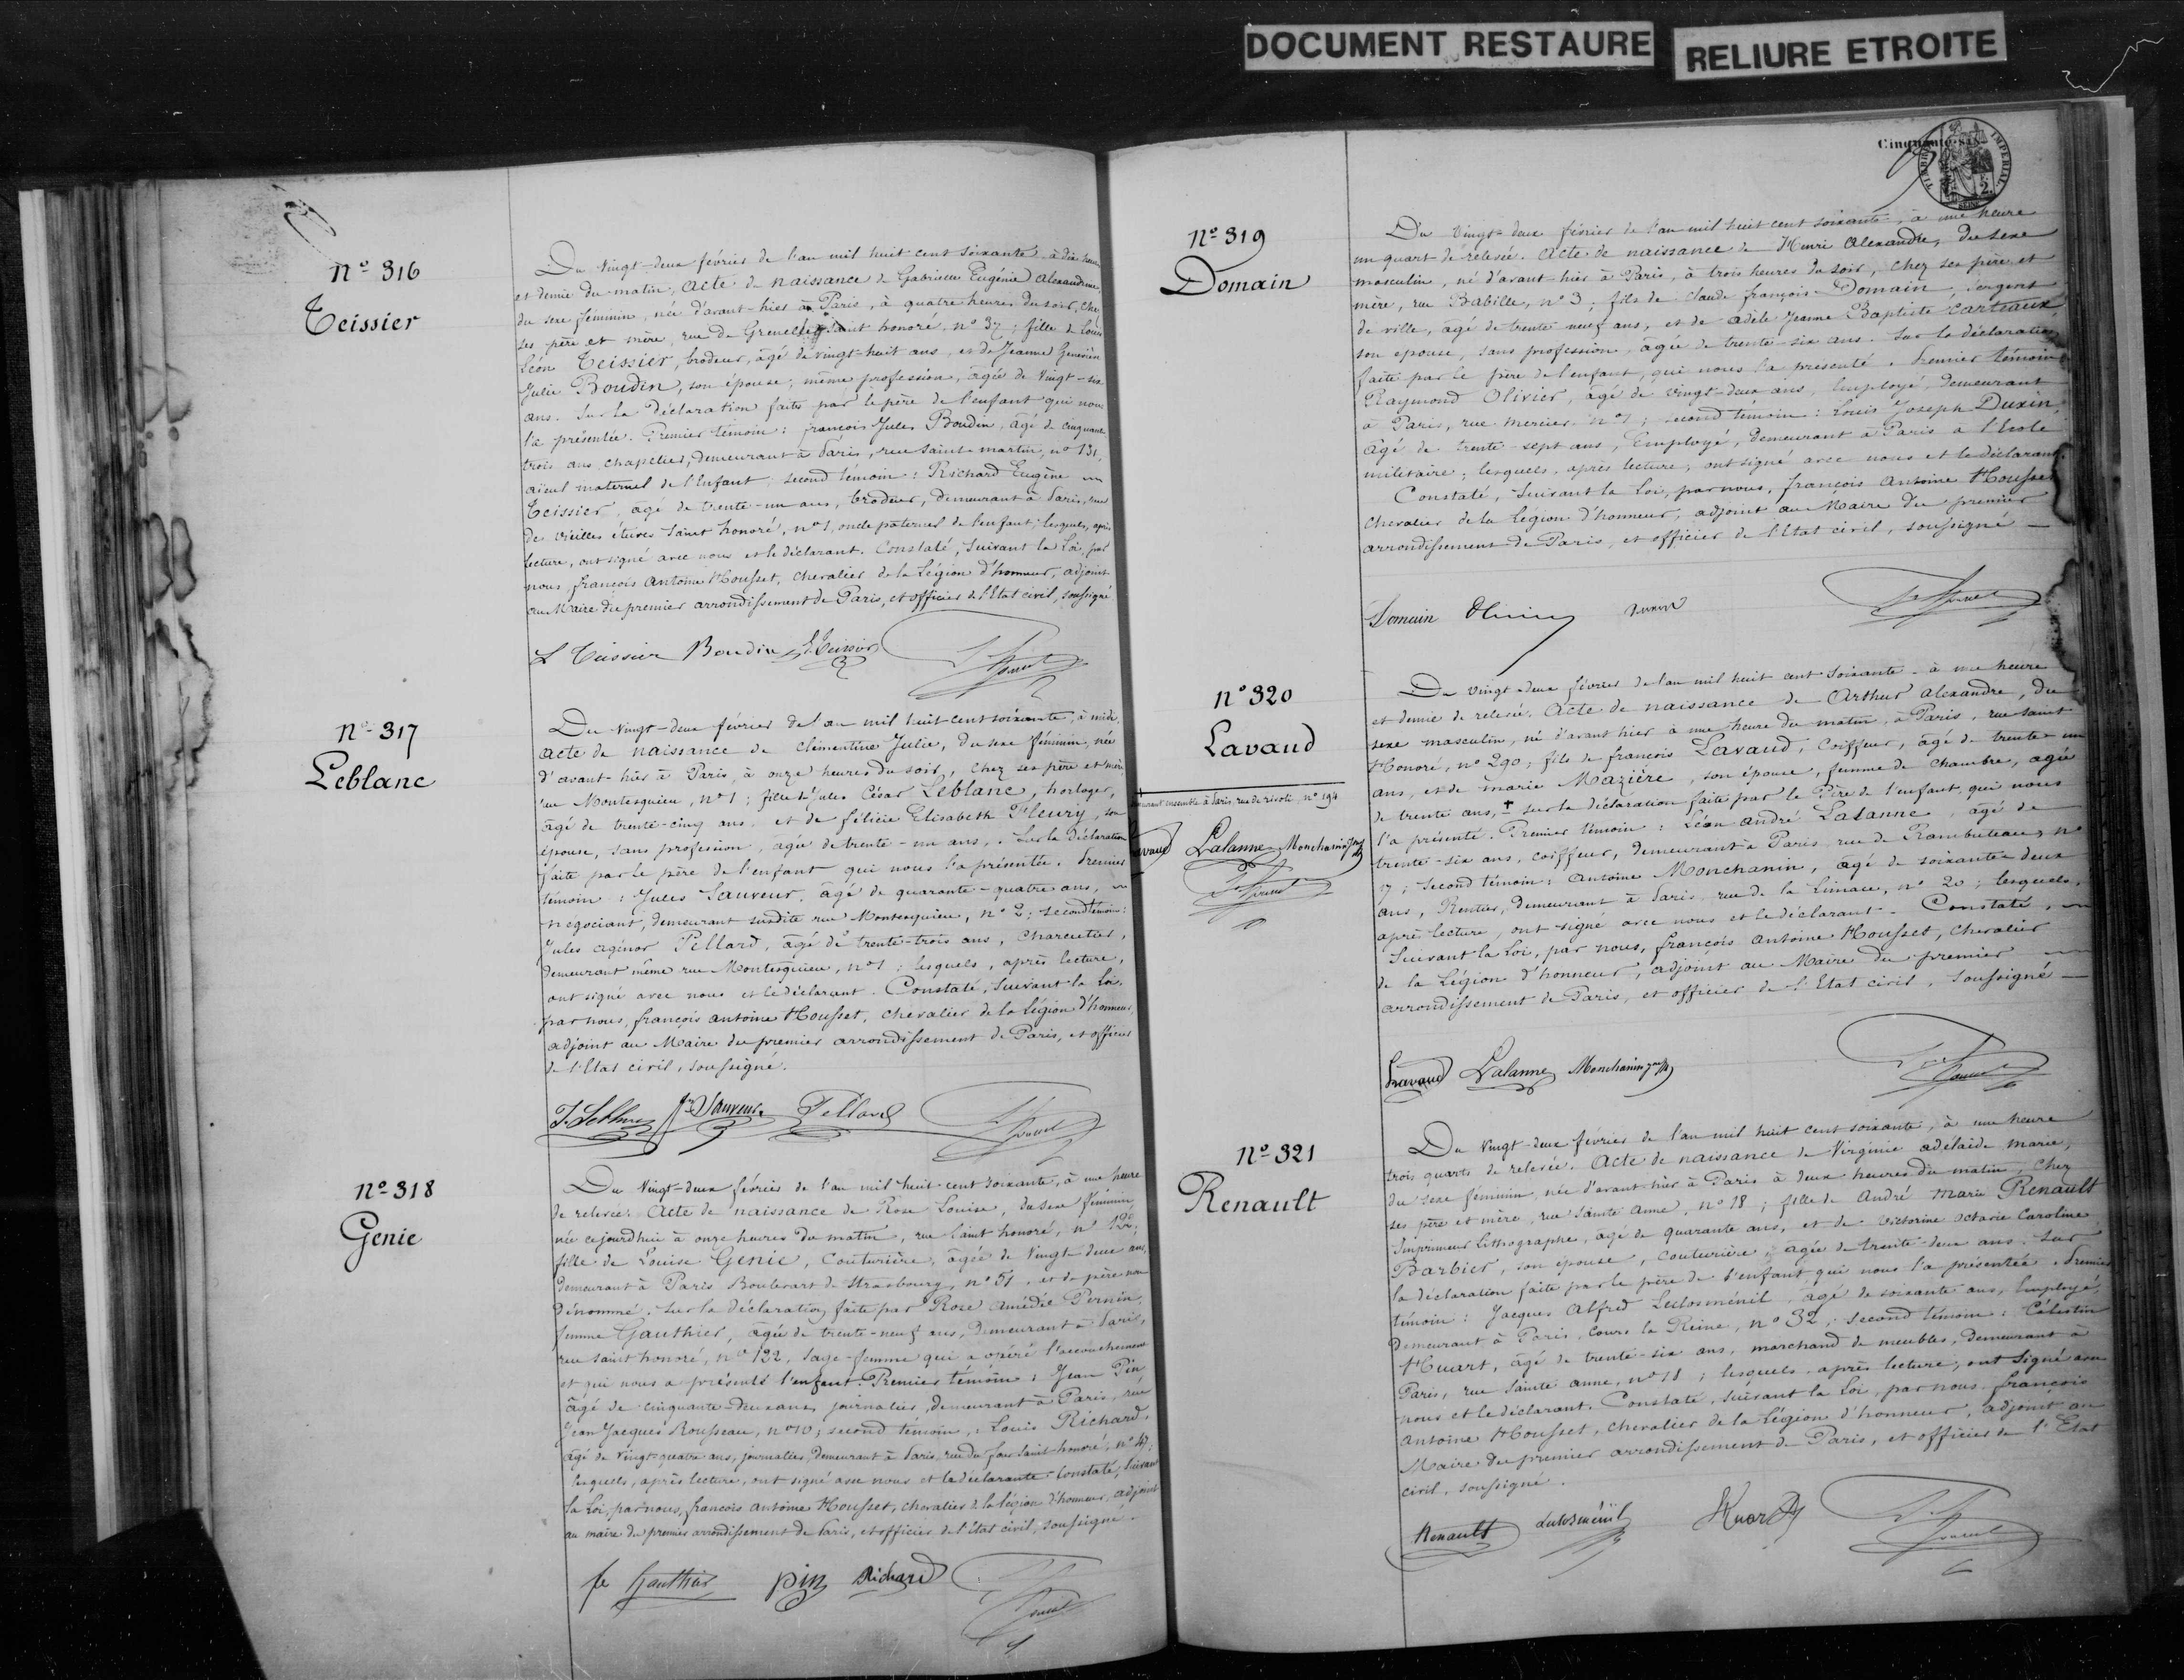 DOCUMENT RESTAURE
RELIURE ETROITE
Nº 316
Teissier
Du Vingt-deux février de l'an mil huit cent soixante, à dix heures
et demie du matin, Acte de naissance de Gabrielle Eugénie Alexandrine,
du sexe féminin, née d'avant-hier à Paris, à quatre heures du soir, chez
ses père et mère, rue de Grenelle Saint honoré, nº 37; fille de Louis
Léon Teissier, brodeur, âgé de vingt-huit ans, et de Jeanne Geneviève
Julie Boudin, son épouse, même profession, âgée de Vingt-six
ans. Sur la Déclaration faite par le père de l'enfant qui nous
l'a présentée. Premier témoin: françois Jules Boudin, âgé de cinquante
trois ans, chapelier, demeurant à Paris, rue Saint-martin, nº 131,
aïeul maternel de l'Enfant; second témoin: Richard Eugène
Teissier, âgé de trente-un ans, brodeur, demeurant à Paris, rue
des vieilles étuves Saint honoré, nº 1, oncle paternel de l'enfant; lesquels, après
lecture, ont signé avec nous et le déclarant. Constaté, Suivant la Loi, par
nous, françois Antoine Housset, Chevalier de la Légion d'honneur, adjoint
au Maire du premier arrondissement de Paris, et officier de l'Etat civil, soussigné
L Teissier Boudin E. Teissier
Nº 317
Leblanc
Du Vingt-deux février de l'an mil huit cent soixante, à midi,
acte de naissance de Clémentine Julie, du sexe féminin, née
d'avant-hier à Paris, à onze heures du soir, chez ses père et mère,
rue Montesquieu, nº 1; fille de Jules César Leblanc, horloger,
âgé de trente-cinq ans, et de félicie Elisabeth Fleury, son
épouse, sans profession, âgée de trente-un ans. Sur la déclaration
faite par le père de l'enfant qui nous l'a présentée. Premier
témoin: Jules Sauveur, âgé de quarante-quatre ans,
négociant, demeurant susdite rue Montesquieu, nº 2; second témoin:
Jules agénor Pellard, âgé de trente-trois ans, Charcutier,
demeurant même rue Montesquieu, nº 1; lesquels, après lecture,
ont signé avec nous et le déclarant. Constaté, Suivant la Loi,
par nous, françois antoine Housset, chevalier de la Légion d'honneur,
adjoint au Maire du premier arrondissement de Paris, et officier
de l'Etat civil, soussigné.
J. Leblanc Jes Sauveur Pellard
Nº 318
Genie
Du Vingt-deux février de l'an mil huit-cent soixante, à une heure
de relevée. Acte de naissance de Rose Louise, du sexe féminin,
née cejourd'hui à onze heures du matin, rue Saint honoré, nº 122,
fille de Louise Genie, Couturière, âgée de Vingt deux ans,
demeurant à Paris Boulevart de Strasbourg, nº 51, et de père non
Dénommé. Sur la déclaration faite par Rose Amédée Pernin,
femme Gauthier, âgée de trente-neuf ans, demeurant à Paris,
rue saint honoré, nº 122, Sage-femme qui a opéré l'accouchement
et qui nous a présenté l'enfant. Premier témoin: Jean Pin
âgé de cinquante-deux ans, journalier, demeurant à Paris, rue
Jean Jacques Rousseau, nº 10; second témoin: Louis Richard,
âgé de Vingt-quatre ans, journalier, demeurant à Paris, rue du fau Saint-honoré, nº 47;
lesquels, après lecture, ont signé avec nous et la déclarante. Constaté, Suivant
la Loi, par nous, françois antoine Housset, chevalier de la légion d'honneur, adjoint
au maire du premier arrondissement de Paris, et officier de l'état civil, soussigné.
fe Gauthier pin Richard
Cinquante-six
TIMBRE IMPERIAL
SEINE
Nº 319
Domain
Du Vingt-deux février de l'an mil huit cent soixante, à une heure
un quart de relevée. Acte de naissance de Henri Alexandre, du sexe
masculin, né d'avant-hier à Paris, à trois heures du soir, chez ses père et
mère, rue Babille, nº 3; fils de Claude françois Domain, Sergent
de ville, âgé de trente neuf ans, et de adèle Jeanne Baptiste Cartiaux,
son épouse, sans profession, âgée de trente-six ans. Sur la déclaration
faite par le père de l'enfant, qui nous l'a présenté. Premier témoin:
Raymond Olivier, âgé de vingt-deux ans, Employé, demeurant
à Paris, rue mercier nº 7; second témoin: Louis Joseph Duxin,
âgé de trente-sept ans, Employé, demeurant à Paris à l'Ecole
militaire; lesquels, après lecture, ont signé avec nous et le déclarant.
Constaté, Suivant la Loi, par nous, françois Antoine Housset
Chevalier de la Légion d'honneur, adjoint au Maire du premier
arrondissement de Paris, et officier de l'Etat civil, soussigné
Domain Olivier Duxin
Nº 320
Lavaud
demeurant ensemble à Paris, rue de rivoli, nº 194
Lavaud Lalanne Monchanin
Du vingt-deux février de l'an mil huit cent soixante, à une heure
et demie de relevée, Acte de naissance de Arthur Alexandre, du
sexe masculin, né d'avant hier à une heure du matin, à Paris, rue saint
Honoré, nº 290; fils de françois Lavaud, Coiffeur, âgé de trente-un
ans, et de marie Mazière, son épouse, femme de chambre, agée
de trente ans, + Sur la déclaration faite par le Père de l'enfant, qui nous
l'a présenté. Premier témoin: Léon André Lalanne, âgé de
trente-six ans, coiffeur, demeurant à Paris, rue de Rambuteau, nº
17; Second témoin: Antoine Monchanin, âgé de soixante-deux
ans, Rentier, demeurant à Paris, rue de la Limace, nº 20; lesquels,
après lecture, ont signé avec nous et le déclarant. Constaté,
Suivant la Loi, par nous, françois antoine Housset, Chevalier
de la Légion d'honneur, adjoint au Maire du premier
arrondissement de Paris, et officier de l'Etat civil, soussigné
Lavaud Lalanne Monchanin
Nº 321
Renault
Du Vingt-deux février de l'an mil huit cent soixante, à une heure
trois quarts de relevée. Acte de naissance de Virginie adélaïde marie,
du sexe féminin, née d'avant-hier à Paris à deux heures du matin, chez
ses père et mère, rue Sainte anne, nº 18; fille de André Marie Renault
Imprimeur Lithographe, âgé de quarante ans, et de Victorine Octavie Caroline
Barbier, son épouse, couturière, âgée de trente-deux ans. Sur
la déclaration faite par le père de l'enfant qui nous l'a présentée. Premier
témoin: Jacques Alfred Leclosménil, âgé de soixante ans, Employé,
demeurant à Paris, Cours la Reine, nº 32; second témoin: Célestin
Huart, âgé de trente-six ans, marchand de meubles, demeurant à
Paris, rue Sainte anne, nº 18; lesquels, après lecture, ont signé avec
nous et le déclarant. Constaté, suivant la Loi, par nous, françois
Antoine Housset, chevalier de la Légion d'honneur, adjoint au
Maire du premier arrondissement de Paris, et officier de l'Etat
civil, soussigné.
Renault Leclosménil Huart